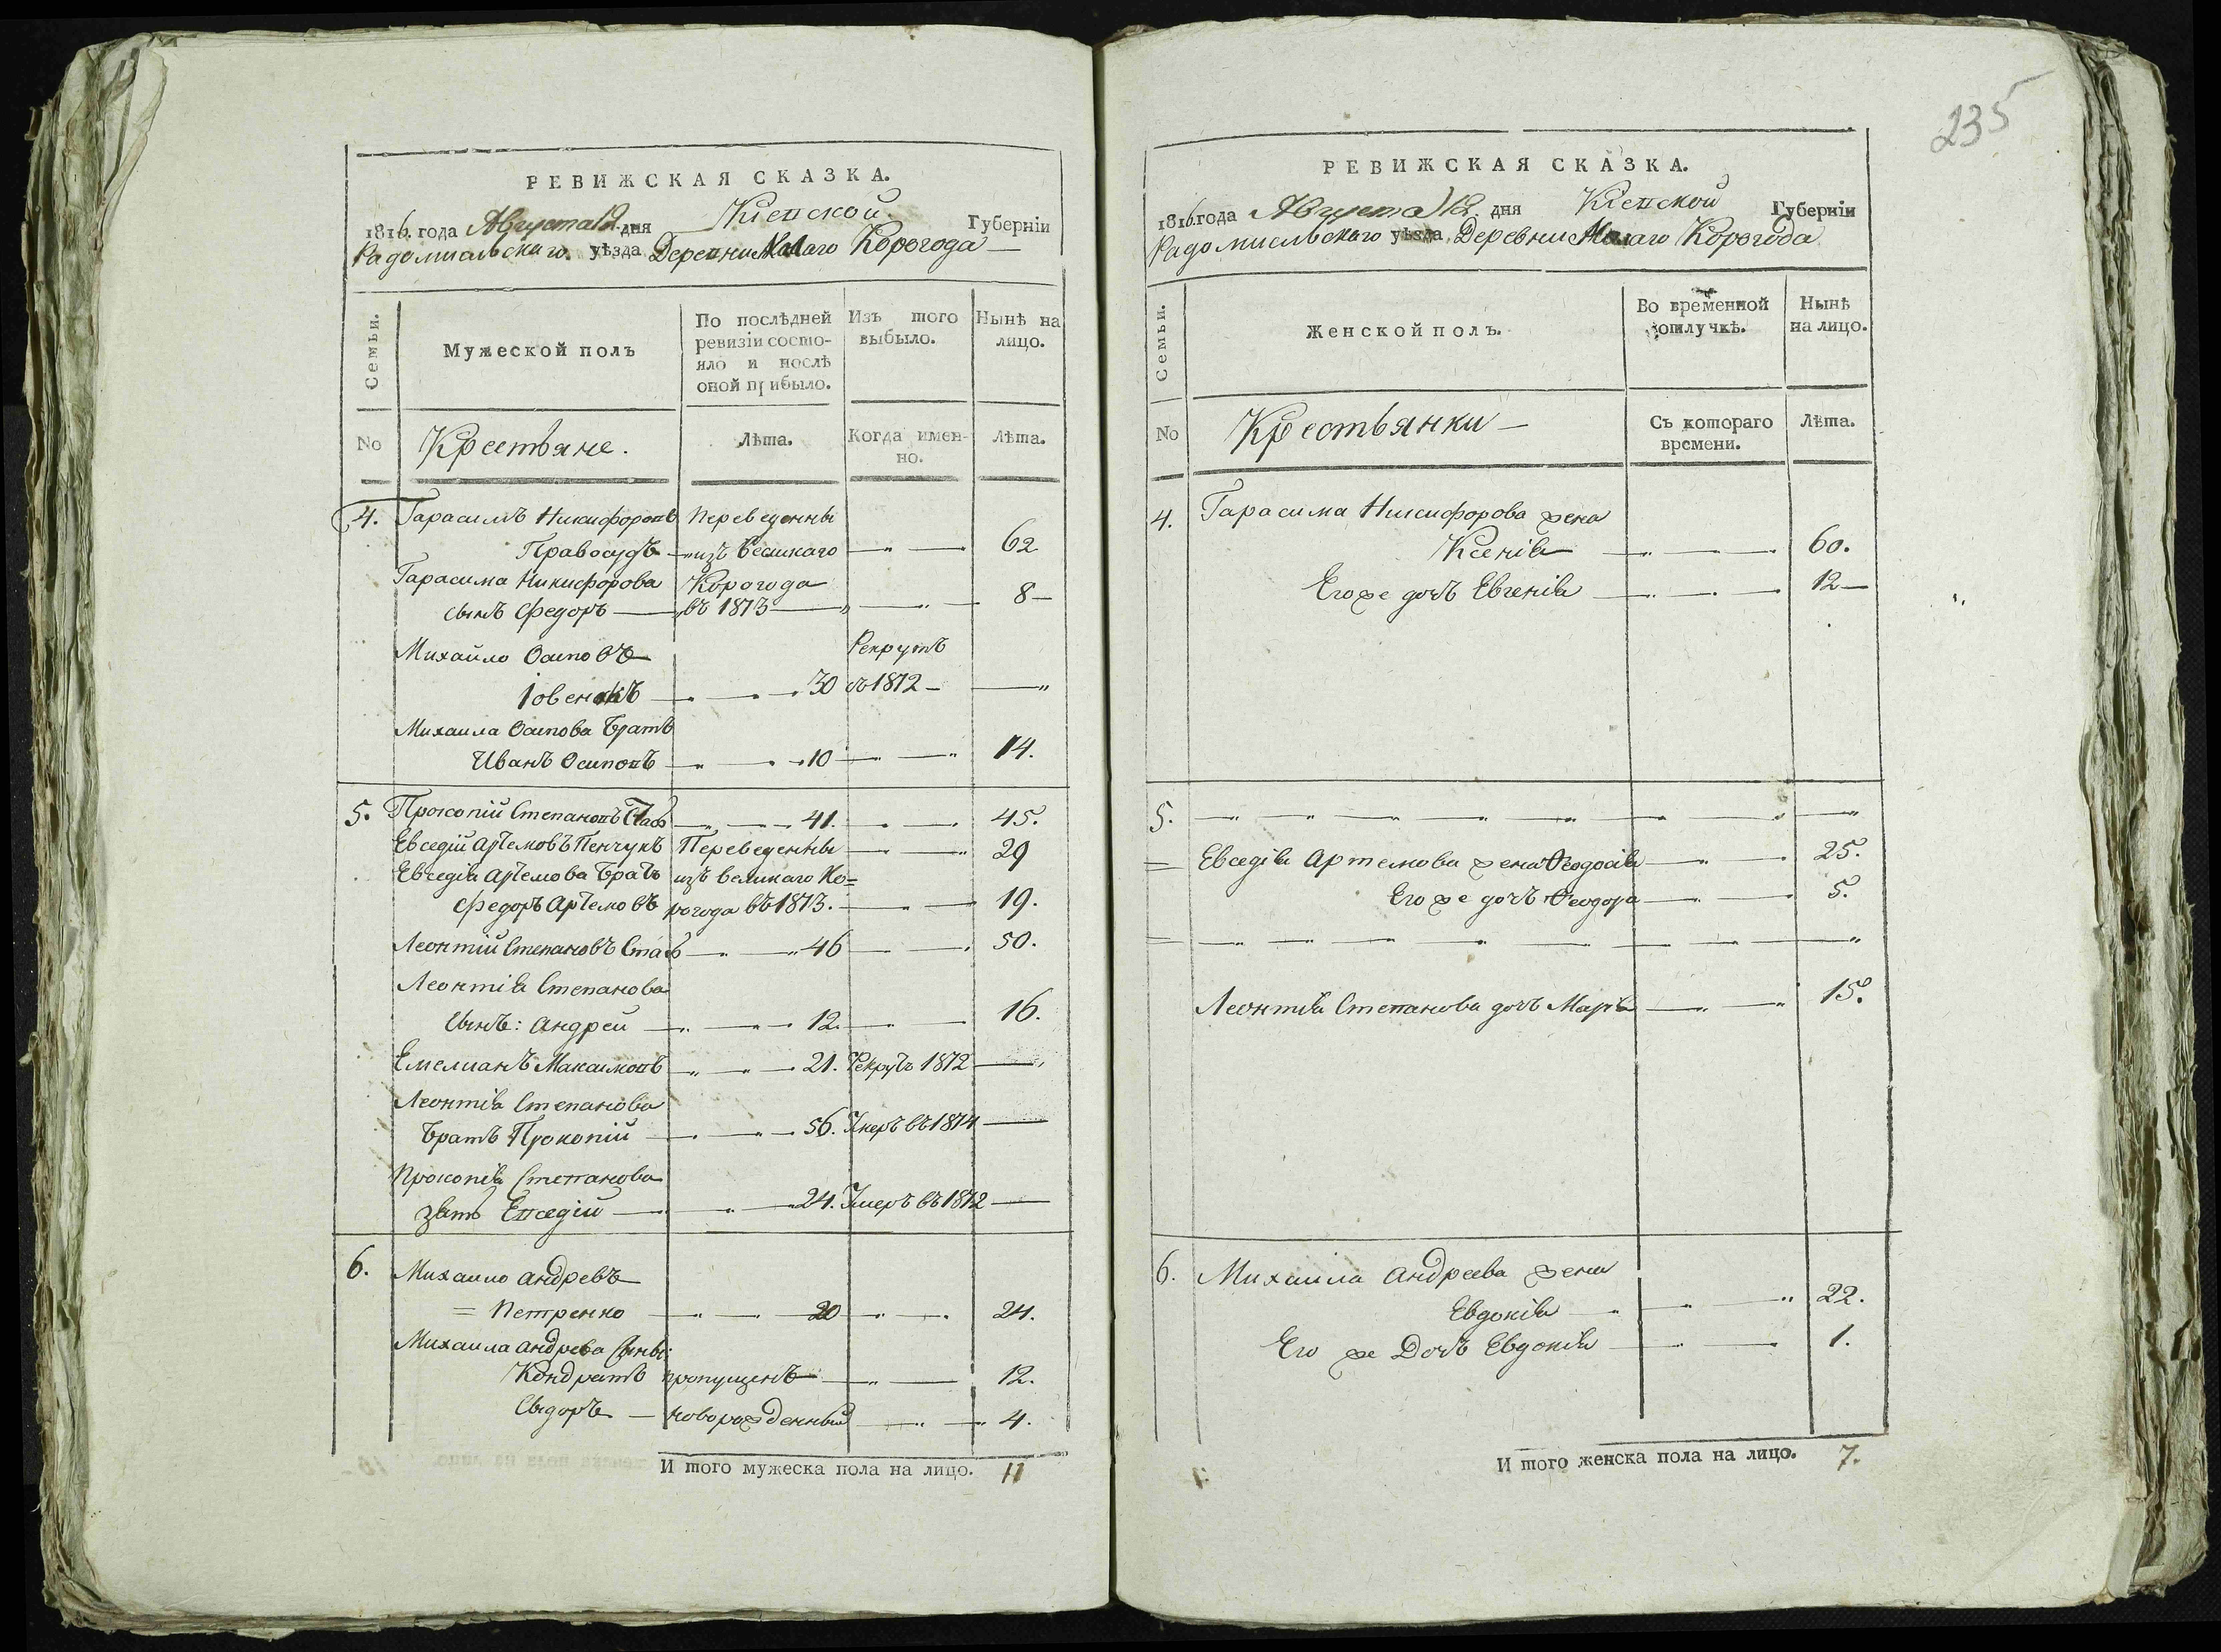 РЕВИЖСКАЯ СКАЗКА.
1816. года Августа 12. дня Кіевской Губерніи
Радомысльскаго. уѣзда Деревни Малаго Корогода
Семьи. Мужеской полъ По послѣдней ревизіи состояло и послѣ оной прибыло. Изъ того выбыло. Нынѣ на лицо.
No Крестьяне. Лѣта. Когда именно. Лѣта.
4. Гарасимъ Никифоровъ Переведенны
Правосудъ изъ Великаго 62
Гарасима Никифорова Корогода
сынъ Федоръ въ 1813 8
Михайло Осиповъ Рекрутъ
30 въ 1812
Михаила Осипова братъ
Иванъ Осиповъ 10 14.
5. Прокопій Степановъ 41. 45.
Евседій Артемовъ Пенчукъ Переведенны 29
Евседія Артемова братъ изъ великаго Ко=
Федоръ Артемовъ рогода въ 1813. 19.
Леонтій Степановъ 46 50.
Леонтія Степанова
сынъ: Андрей 12. 16.
Емелианъ Максимовъ 21. Рекрутъ 1812
Леонтія Степанова
братъ Прокопій 56. Умеръ въ 1814
Прокопія Степанова
зять Евседій 24. Умеръ въ 1812
6. Михайло Андревъ
= Петренко 20 24.
Михаила Андрева сыны:
Кондратъ пропущенъ 12.
Сыдоръ новорожденный 4.
И того мужеска пола на лицо. 11
235
РЕВИЖСКАЯ СКАЗКА.
1816. года Августа 12. дня Кіевской Губерніи
Радомысльскаго уѣзда Деревни Малаго Корогода
Семьи. Женской полъ. Во временной отлучкѣ. Нынѣ на лицо.
No Крестьянки Съ котораго времени. Лѣта.
4. Гарасима Никифорова жена
Ксенія 60.
Его же дочъ Евгенія 12
5.
= Евседія Артемова жена Феодосія 25.
Его же дочъ Феодора 5.
=
Леонтія Степанова дочъ Марія 15.
6. Михаила Андреева жена
Евдокія 22.
Его же Дочъ Евдокія 1.
И того женска пола на лицо. 7.